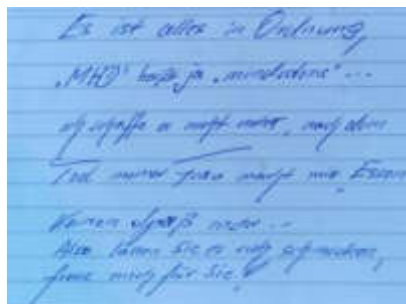 Es ist alles in Ordnung,
„MHD" heißt ja „mindestens"...
ich schaffe es nicht mehr, nach dem
Tod meiner Frau macht mir Essen
keinen Spaß mehr...
Also lassen Sie es sich schmecken,
freue mich für Sie!